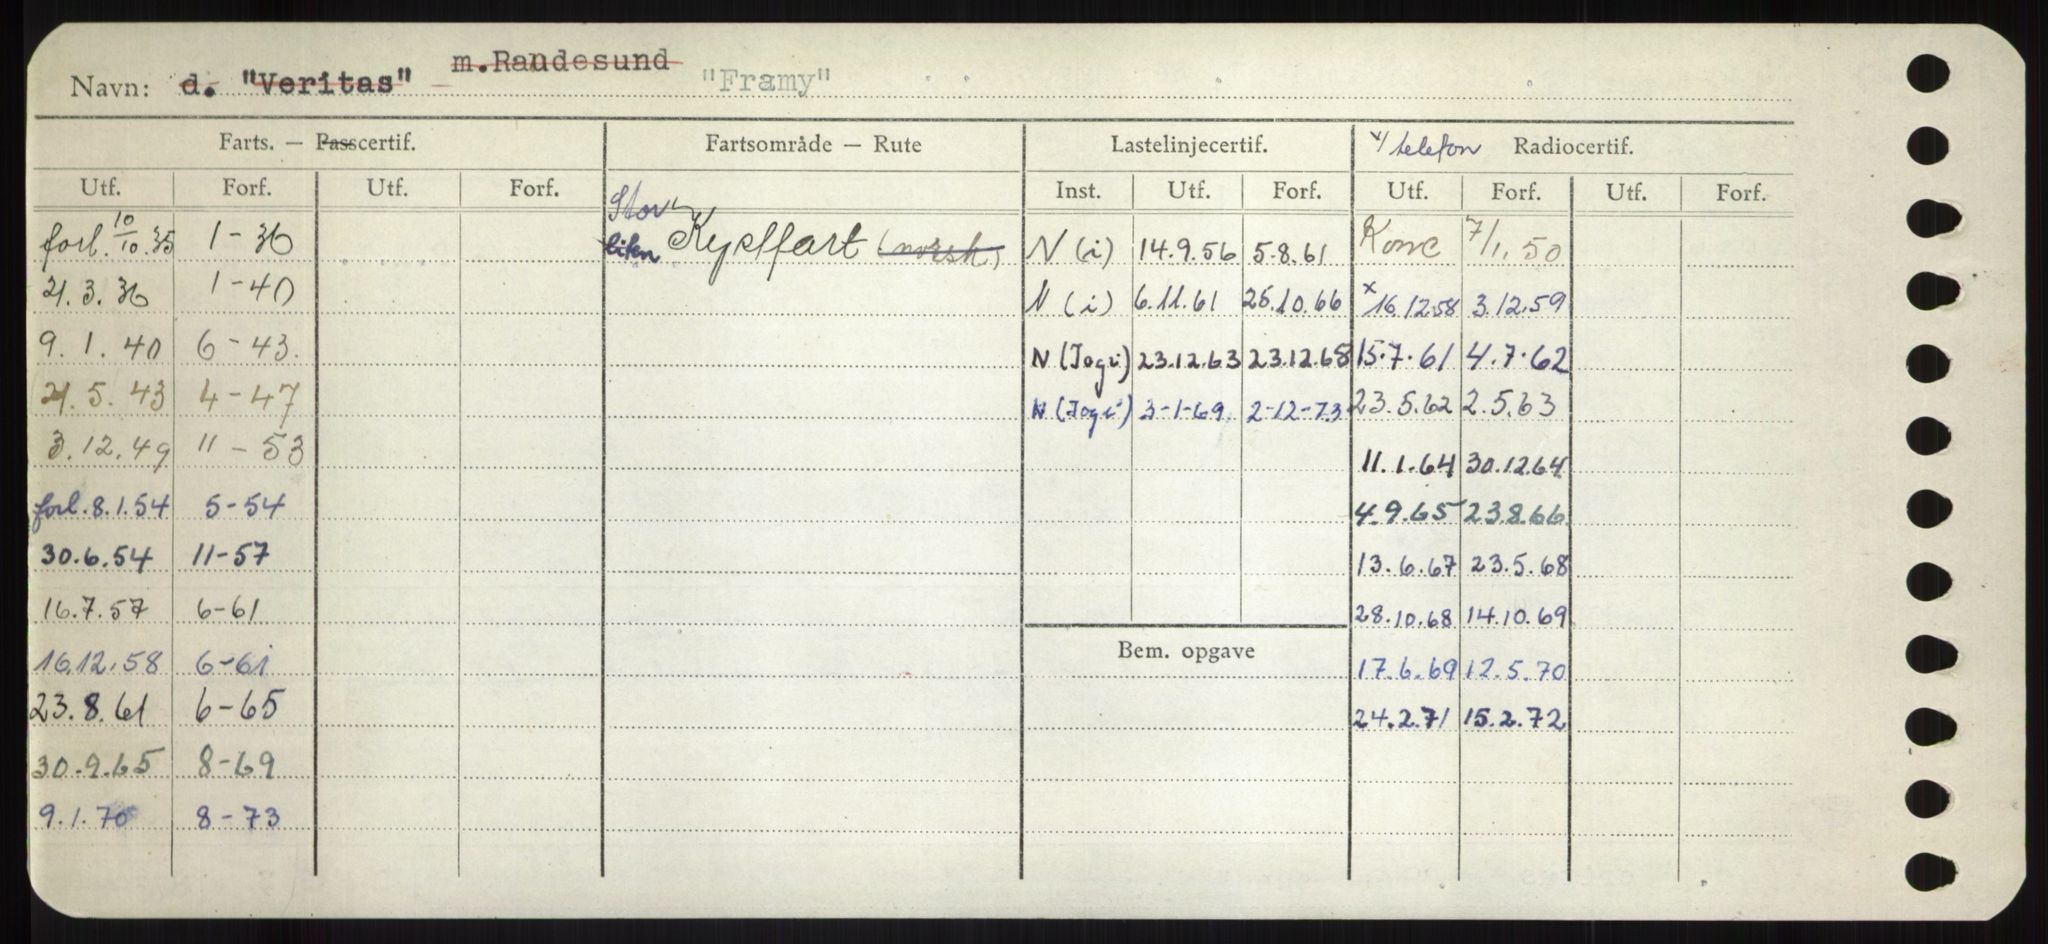 Navn: d. "Veritas" m.Randesund "Framy"
Farts. — Passcertif. Fartsområde — Rute Lastelinjecertif. x/ telefon Radiocertif.
Utf. Forf. Utf. Forf. Inst. Utf. Forf. Utf. Forf. Utf. Forf.
Stor
forl. 10/10.35 1-36 liten Kystfart (norsk) N (i) 14.9.56 5.8.61 7/1.50
21.3.36 1-40 N (i) 6.11.61 26.10.66 x 16.12.58 3.12.59
9.1.40 6-43. N (Jogi) 23.12.63 23.12.68 15.7.61 4.7.62
21.5.43 4-47 N (Jogi) 3-1-69 2-12-73 23.5.62 2.5.63
3.12.49 11-53 11.1.64 30.12.64
forl. 8.1.54 5-54 4.9.65 23.8.66
30.6.54 11-57 13.6.67 23.5.68
16.7.57 6-61 28.10.68 14.10.69
Bem. opgave
16.12.58 6-61 17.6.69 12.5.70
23.8.61 6-65 24.2.71 15.2.72
30.9.65 8-69
9.1.70 8-73